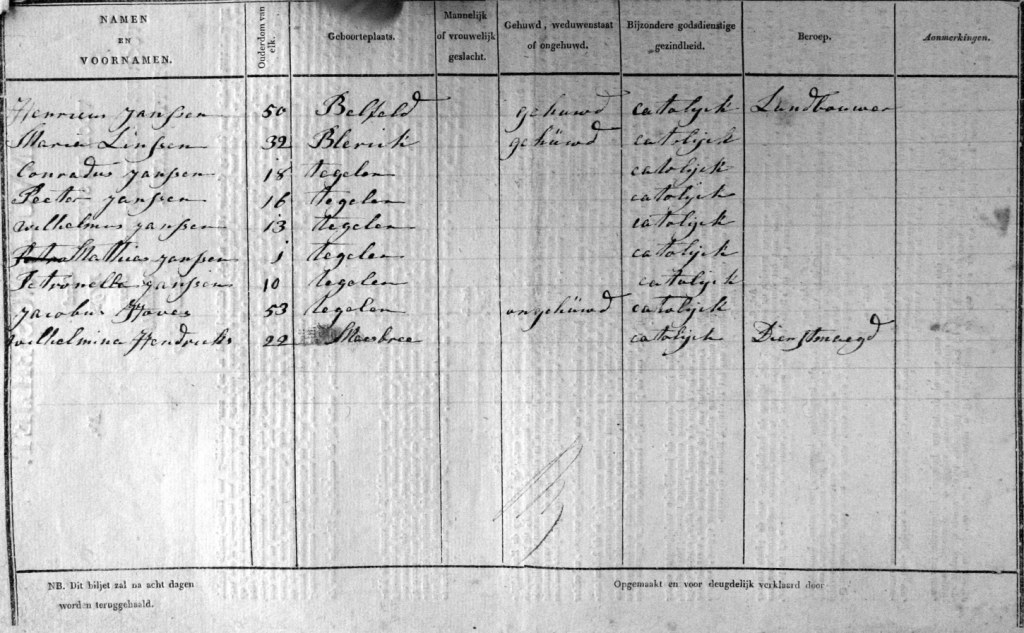 NAMEN EN VOORNAMEN. Ouderdom van elk. Geboorteplaats. Mannelijk of vrouwelijk geslacht. Gehuwd, weduwenstaat of ongehuwd. Bijzondere godsdienstige gezindheid. Beroep. Aanmerkingen.
Henricus Janssen 50 Belfeld gehuwd catolijck Landbouwer
Maria Linssen 39 Blerick gehüwd catolijck
Conradus Janssen 18 tegelen catolijck
Peeter Janssen 16 tegelen catolijck
wilhelmus Janssen 13 tegelen catolijck
Mathias Janssen 1 tegelen catolijck
Petronella Janssen 10 tegelen catolijck
Jacobus 53 tegelen ongehüwd catolijck
wilhelmina Hendricks 22 Maesbree catolijck Dienstmaegd
NB. Dit biljet zal na acht dagen
worden teruggehaald.
Opgemaakt en voor deugdelijk verklaard door